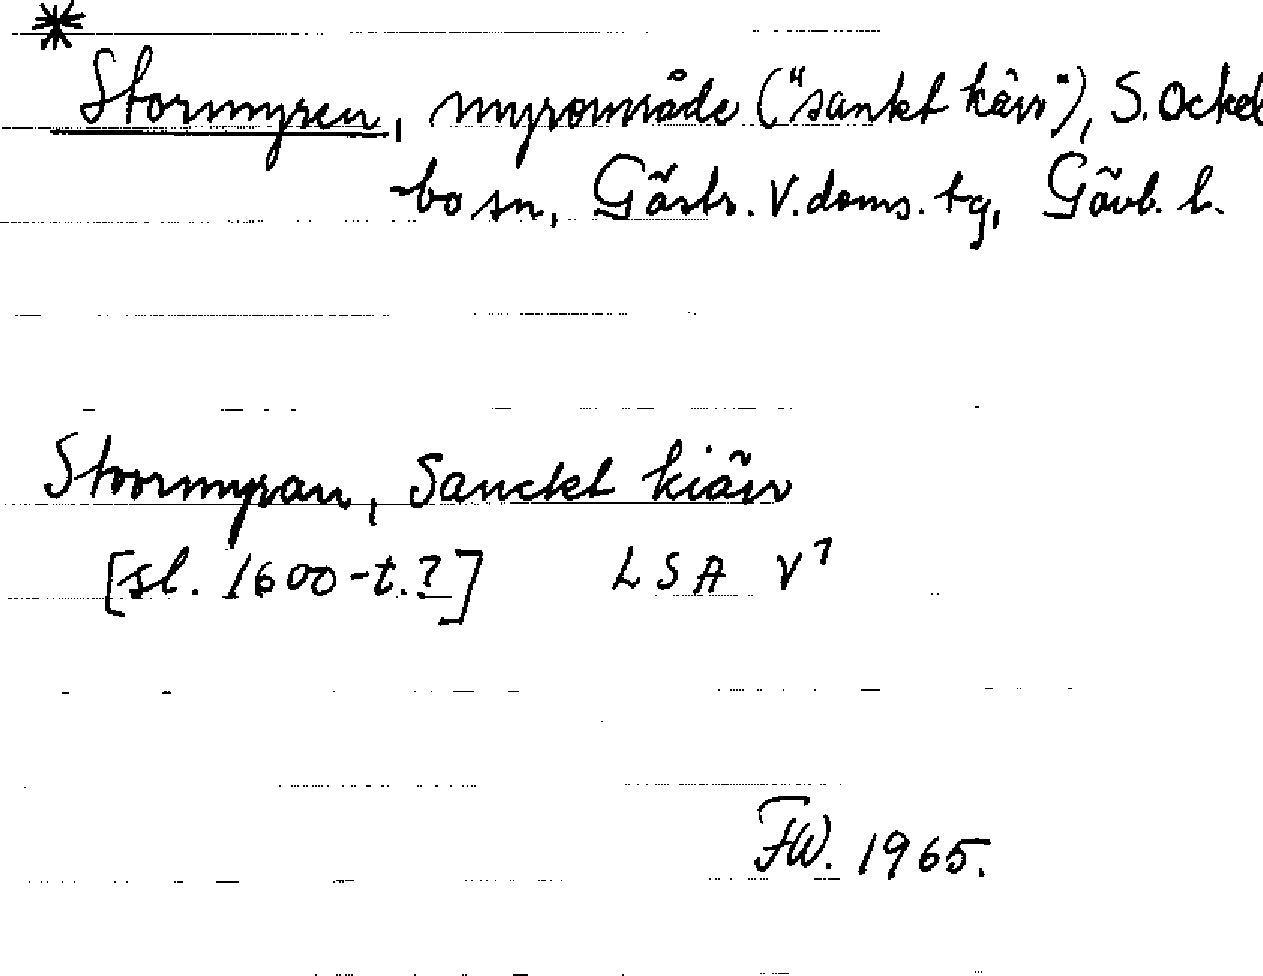 *
Stormyren, myrområde ("sankt kärr"), S. Ockel
-bo sn, Gästr. V. doms. tg, Gävb. l.
Stoormyran, Sanckt kiärr
[sl. 1600-t.?] LSA V⁷
FW. 1965.